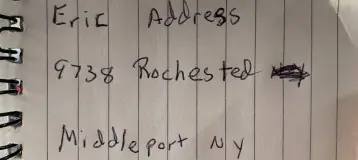 Eric Address
9738 Rochested
Middleport NY